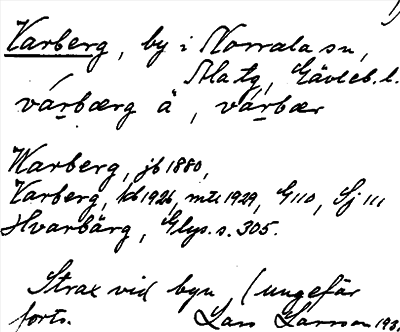 1)
Varberg, by i Norrala sn,
Ala tg, Gävleb. l.
várbærg ä, várbær
Warberg, jb 1880,
Varberg, kb 1926, mtl 1929, G 110, Sj 111
Hvarbärg, Glys. s. 305.
Strax vid byn, (ungefär
forts. Lars Larsson 193.